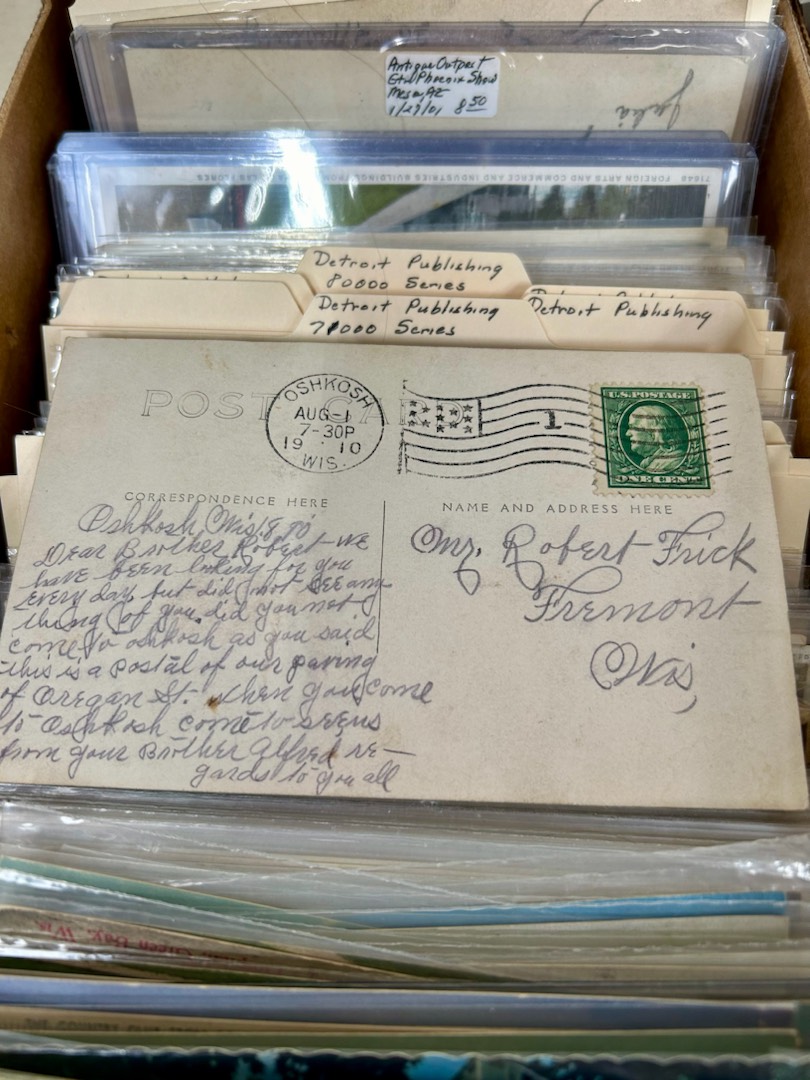 Antique Outpost
Gtr Phoenix Show
Mesa, AZ
1/27/01 8 50
Julia
71648 FOREIGN ARTS AND COMMERCE AND INDUSTRIES BUILDINGS, FRO LAS FLORES
Detroit Publishing
80000 Series
Detroit Publishing
71000 Series
Detroit Publishing
POST CARD
OSHKOSH
AUG-1
7-30P
19 10
WIS.
1
U.S. POSTAGE
ONE CENT
CORRESPONDENCE HERE
NAME AND ADDRESS HERE
Oshkosh, Wis,
Dear Brother Robert - we
have been looking for you
every day but did not see any
thing of you did you not
come to oshkosh as you said
this is a postal of our paving
of Oregan St. when you come
to Oshkosh come to see us
from your Brother Alfred re-
gards to you all
Mr. Robert Frick
Fremont
Wis,
Green Bay, Wis.
THE COUNTRY CLUB